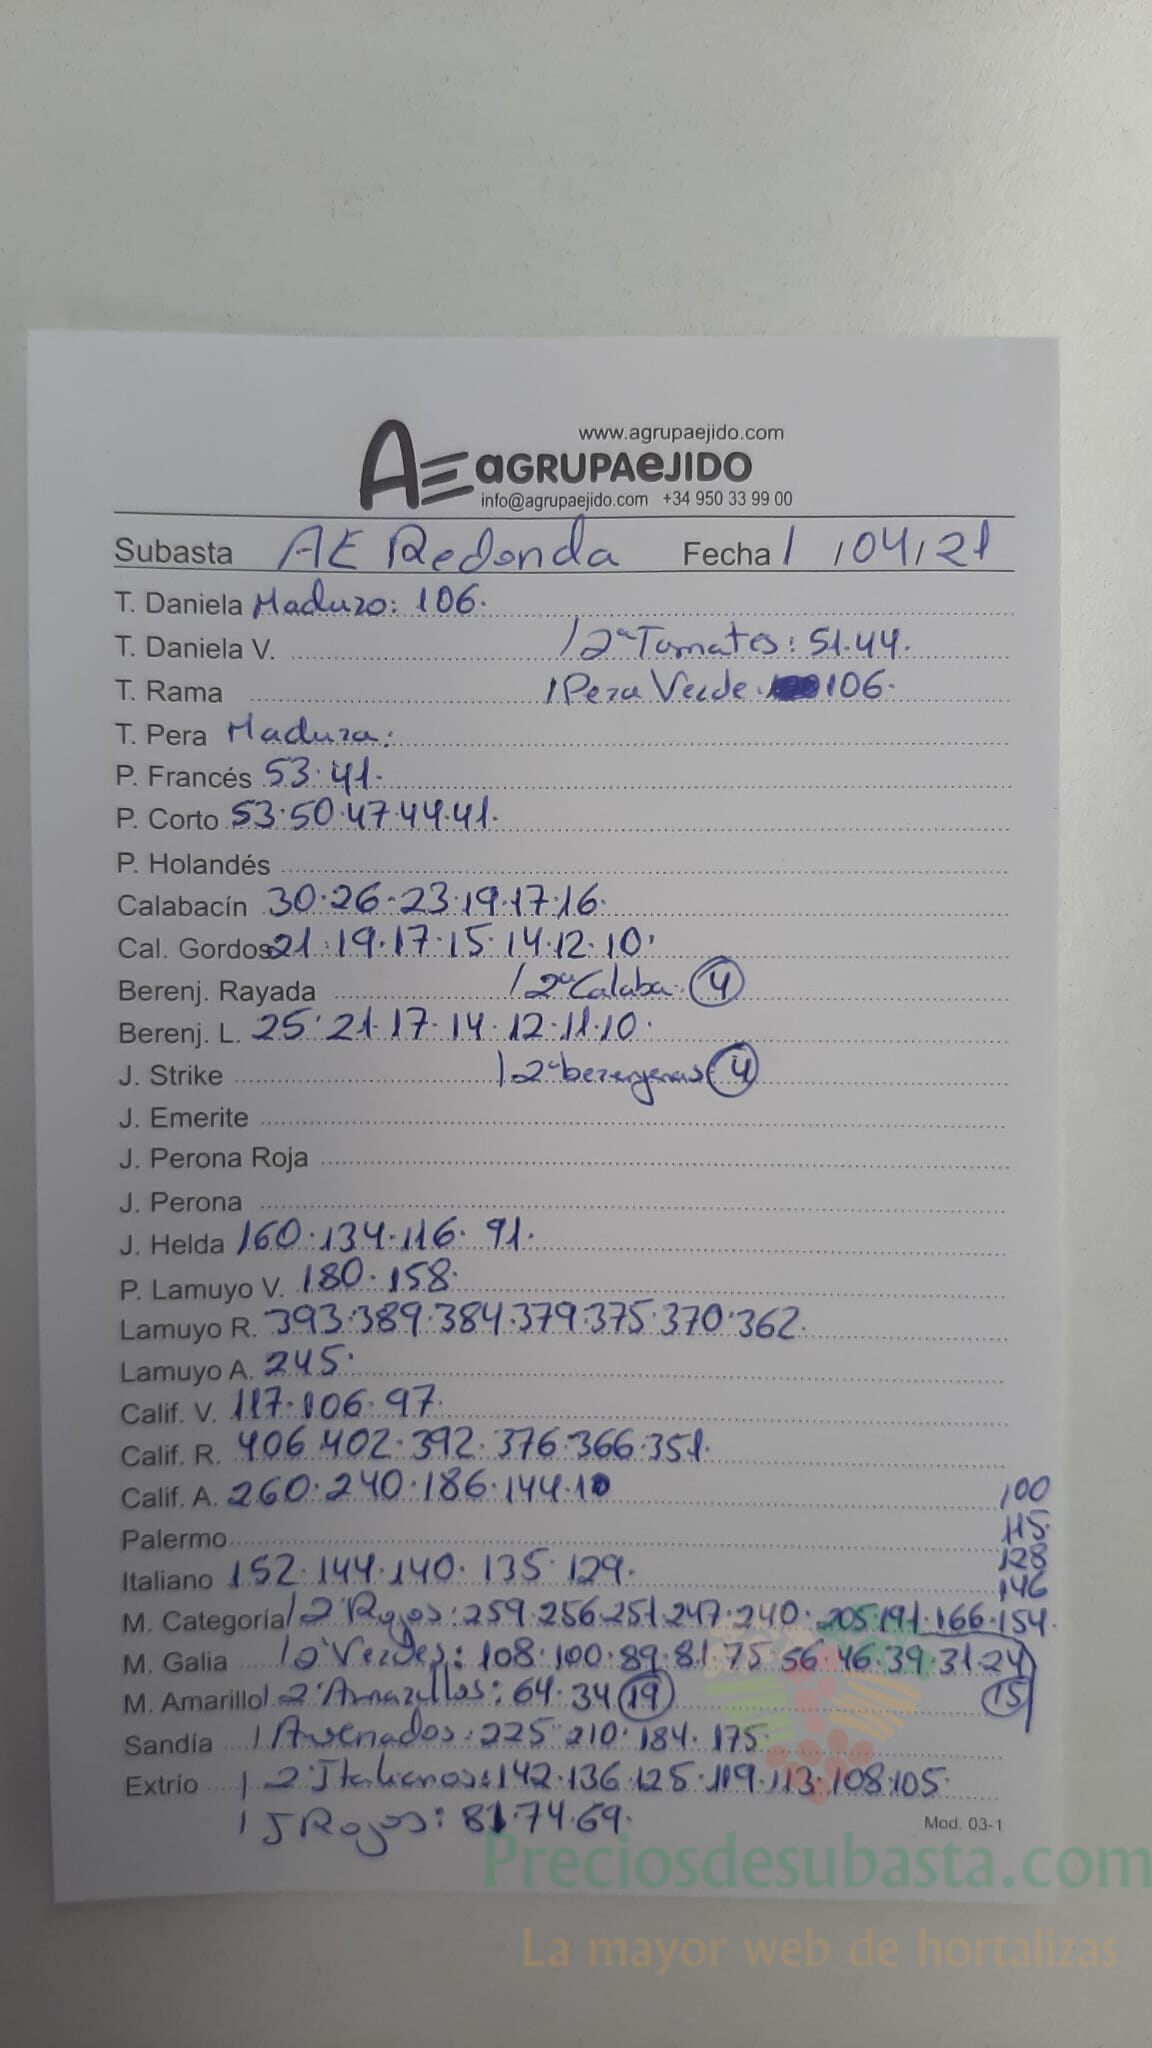 www.agrupaejido.com
AE AGRUPAEJIDO
info@agrupaejido.com +34 950 33 99 00
Subasta AE Redonda Fecha 1 /04/21
T. Daniela Maduro: 106.
T. Daniela V. / 2ª Tomates: 51.44.
T. Rama / Pera Verde. 106.
T. Pera Madura:
P. Francés 53.41.
P. Corto 53.50.47.44.41.
P. Holandés
Calabacín 30.26.23.19.17.16.
Cal. Gordos 21.19.17.15.14.12.10.
Berenj. Rayada / 2ª Calaba. 4
Berenj. L. 25.21.17.14.12.11.10.
J. Strike / 2ª berenjenas 4
J. Emerite
J. Perona Roja
J. Perona
J. Helda 160.134.116.91.
P. Lamuyo V. 180.158.
Lamuyo R. 393.389.384.379.375.370.362.
Lamuyo A. 245.
Calif. V. 117.106.97.
Calif. R. 406.402.392.376.366.351.
Calif. A. 260.240.186.144.10
100
Palermo 115.
128
Italiano 152.144.140.135.129.
146
M. Categoría / 2ª Rojos: 259.256.251.247.240.205.191.166.154.
M. Galia / 2ª Verdes: 108.100.89.81.75.56.46.39.31.24
M. Amarillo / 2ª Amarillos: 64.34 19 15
Sandía / Asenados: 225.210.184.175.
Extrío / 2ª Italianos: 142.136.125.119.113.108.105.
/ J Rojos: 81.74.69.
Mod. 03-1
Preciosdesubasta.com
La mayor web de hortalizas